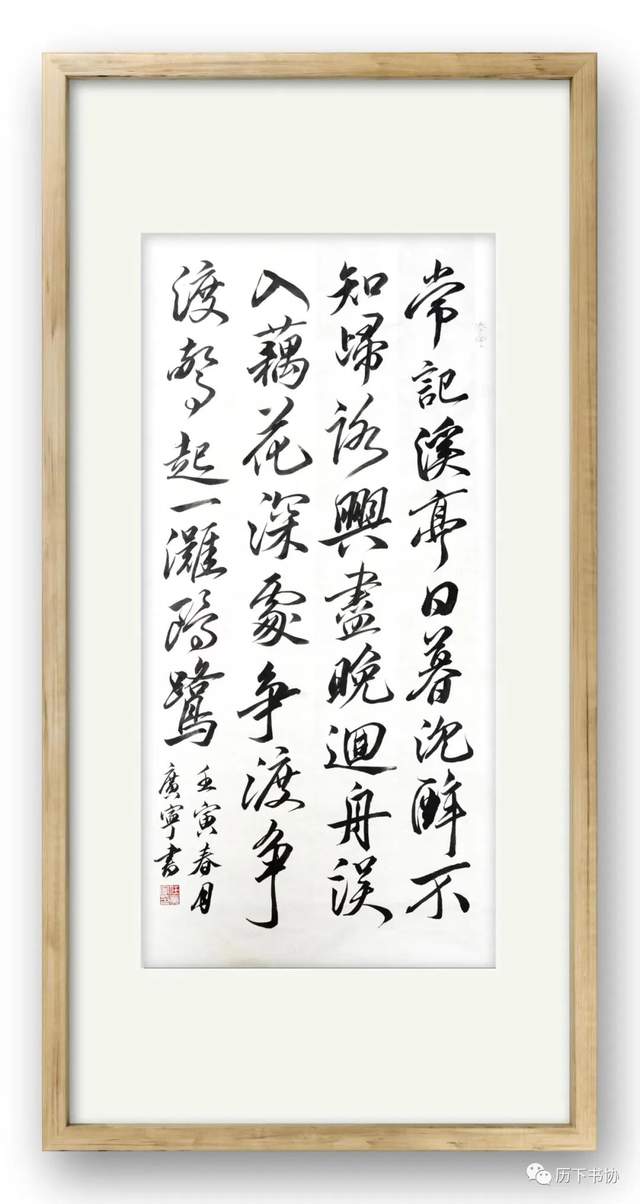 常記溪亭日暮沉醉不
知歸路興盡晚迴舟误
入藕花深處争渡争
渡驚起一灘鷗鷺
壬寅春月
廣寧書
历下书协